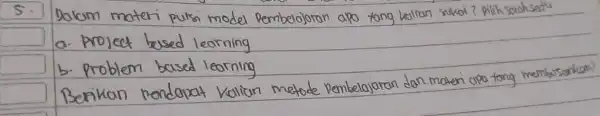 5. Dalam materi putin model Pembelajaran apa yang kalian sukai? pilih salah satu
a. project based learning
b. problem based learning
Berikan pendapat kalian metode Pembelajaran dan materi apa yang membosankan?